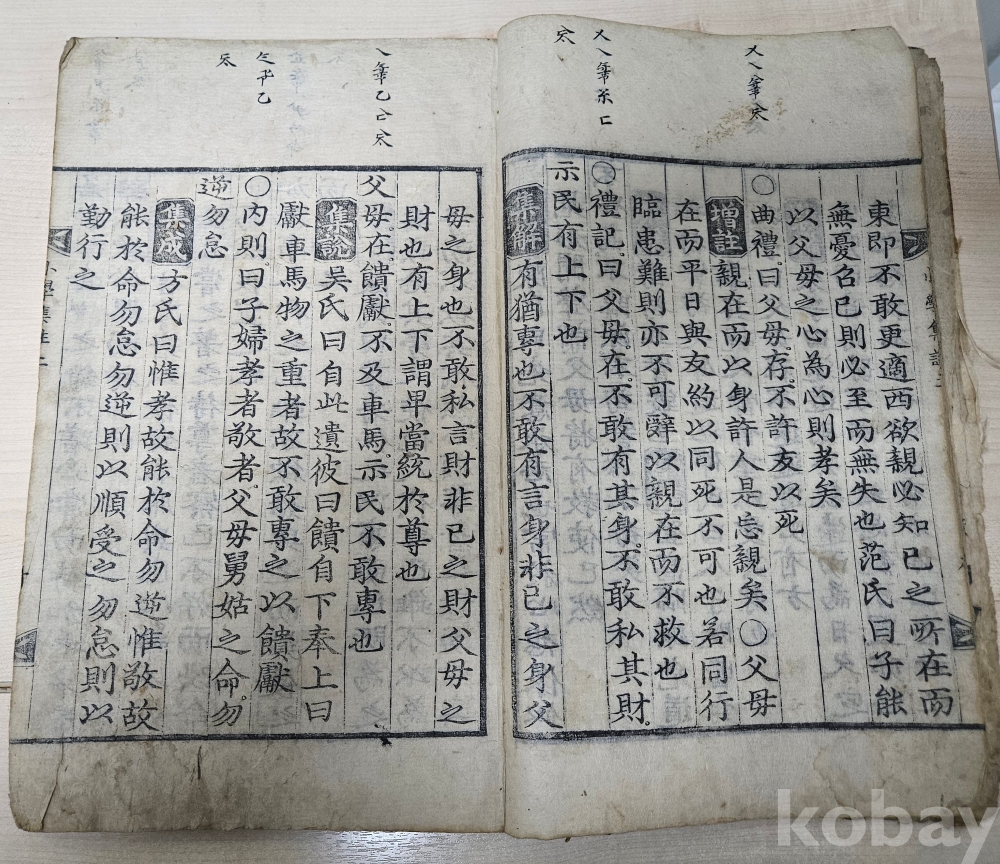 東即不敢更適西欲親必知已之所在而
無憂召已則必至而無失也范氏曰子能
以父母之心為心則孝矣
○曲禮曰父母。存。不許友以死
增註親在而以身許人是忘親矣○父母
在而平日與友約以同死不可也若同行
臨患難則亦不可辭以親在而不救也
○禮記。曰父母。在。不敢有其身。不敢私其財。
示民有上下也
集解有猶專也不敢有言身非已之身父
母之身也不敢私言財非已之財父母之
財也有上下謂卑當統於尊也
父母在饋獻。不及車馬。示民不敢專也
集說吳氏曰自此遺彼曰饋自下奉上曰
獻車馬物之重者故不敢專之以饋獻
○內則。曰子婦孝者敬者。父母舅姑之命。勿
逆勿怠
集成方氏曰惟孝故能於命勿逆惟敬故
能於命勿怠勿逆則以順受之勿怠則以
勤行之
kobay